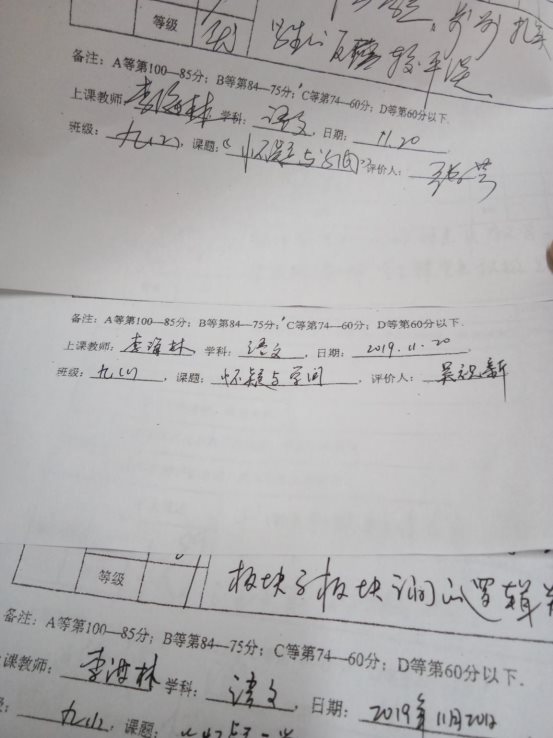 等级 优
学生的质疑较平淡
备注：A等第100—85分；B等第84—75分；C等第74—60分；D等第60分以下.
上课教师 李海林 学科: 语文，日期: 11.20
班级: 九(2)，课题:《怀疑与学问》评价人:
备注：A等第100—85分；B等第84—75分；C等第74—60分；D等第60分以下.
上课教师: 李海林 学科: 语文，日期: 2019.11.20
班级: 九(2)，课题: 怀疑与学问，评价人:
等级 板块与板块间的逻辑
备注：A等第100—85分；B等第84—75分；C等第74—60分；D等第60分以下.
课教师: 李海林 学科: 语文，日期: 2019年11月20日
九(2)，课题: